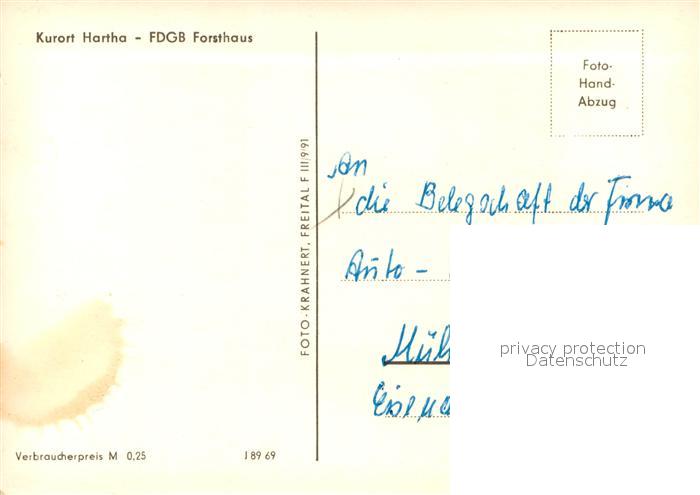 Kurort Hartha - FDGB Forsthaus
Foto-
Hand-
Abzug
FOTO-KRAHNERT, FREITAL F III/9/91
An
die Belegschaft der Firma
Auto -
Müh
Eisena
privacy protection
Datenschutz
Verbraucherpreis M 0,25
J 89 69